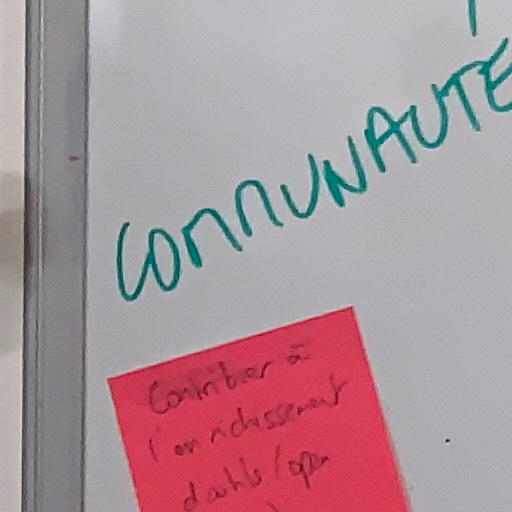 COMMUNAUTÉ
Contribuer à
l'enrichissement
/open